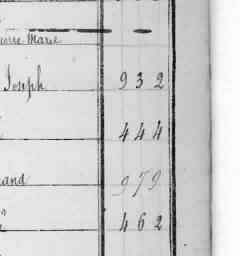 Pierre Marie —
Joseph 932
444
and 979
462